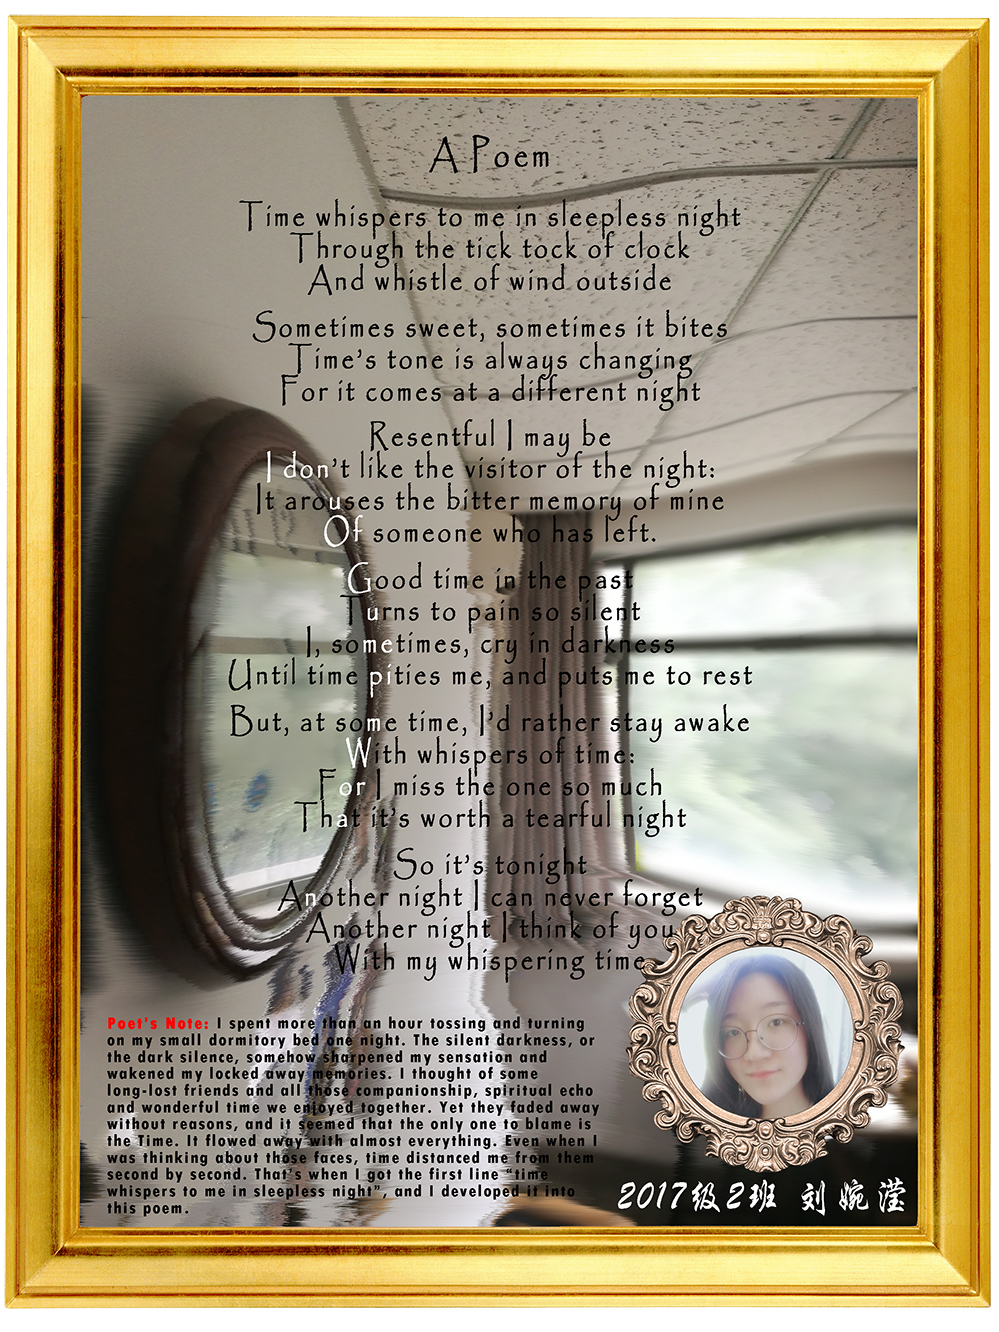 A Poem
Time whispers to me in sleepless night
Through the tick tock of clock
And whistle of wind outside
Sometimes sweet, sometimes it bites
Time's tone is always changing
For it comes at a different night
Resentful I may be
I don't like the visitor of the night:
It arouses the bitter memory of mine
Of someone who has left.
Good time in the past
Turns to pain so silent
I, sometimes, cry in darkness
Until time pities me, and puts me to rest
But, at some time, I'd rather stay awake
With whispers of time:
For I miss the one so much
That it's worth a tearful night
So it's tonight
Another night I can never forget
Another night I think of you
With my whispering time
Poet's Note: I spent more than an hour tossing and turning
on my small dormitory bed one night. The silent darkness, or
the dark silence, somehow sharpened my sensation and
wakened my locked away memories. I thought of some
long-lost friends and all those companionship, spiritual echo
and wonderful time we enjoyed together. Yet they faded away
without reasons, and it seemed that the only one to blame is
the Time. It flowed away with almost everything. Even when I
was thinking about those faces, time distanced me from them
second by second. That's when I got the first line “time
whispers to me in sleepless night”, and I developed it into
this poem.
2017级2班 刘婉滢